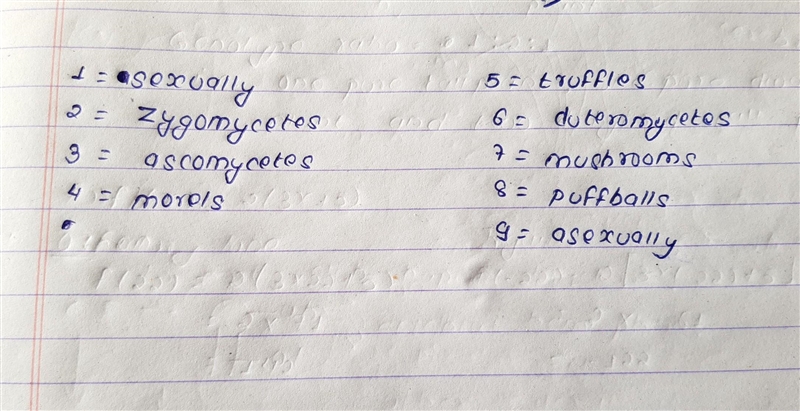 1 = asexually
2 = zygomycetes
3 = ascomycetes
4 = morels
5 = truffles
6 = duteromycetes
7 = mushrooms
8 = puffballs
9 = asexually